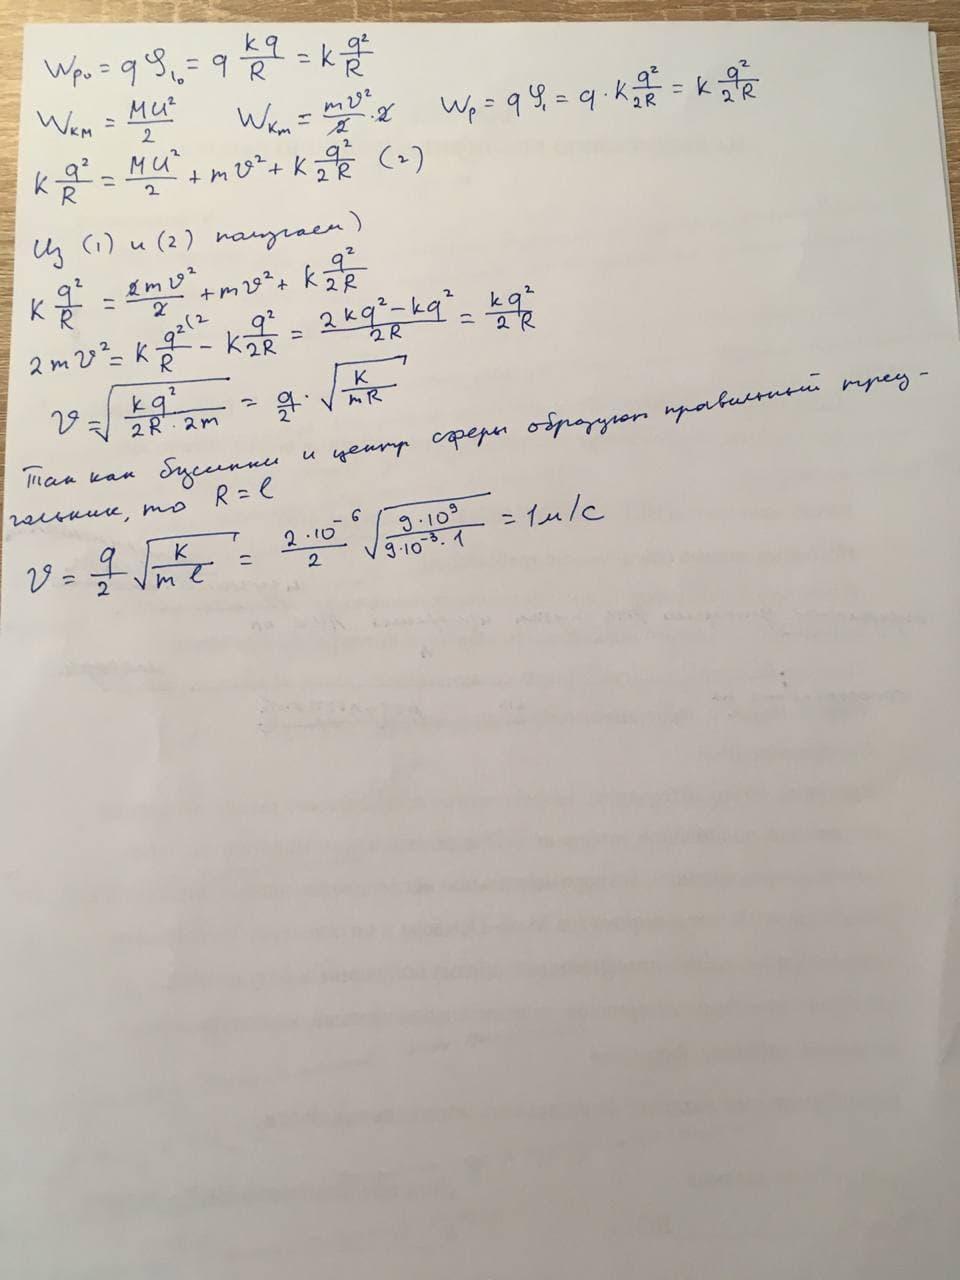 Wp₀ = qφ₁₀ = q kq/R = k q²/R
Wкм = Mu²/2 Wкm = mv²/2 · 2 Wp = qφ₁ = q · k q²/2R = k q²/2R
k q²/R = Mu²/2 + mv² + k q²/2R (2)
Из (1) и (2) получаем)
k q²/R = 2mv²/2 + mv² + k q²/2R
2mv² = k q²⁽²/R - k q²/2R = 2kq² - kq²/2R = kq²/2R
v = √(kq²/2R · 2m) = q/2 · √(k/mR)
Так как бусинки и центр сферы образуют правильный треу-
гольник, то R = l
v = q/2 √(k/m l) = 2·10⁻⁶/2 √(9·10⁹/9·10⁻³·1) = 1м/с